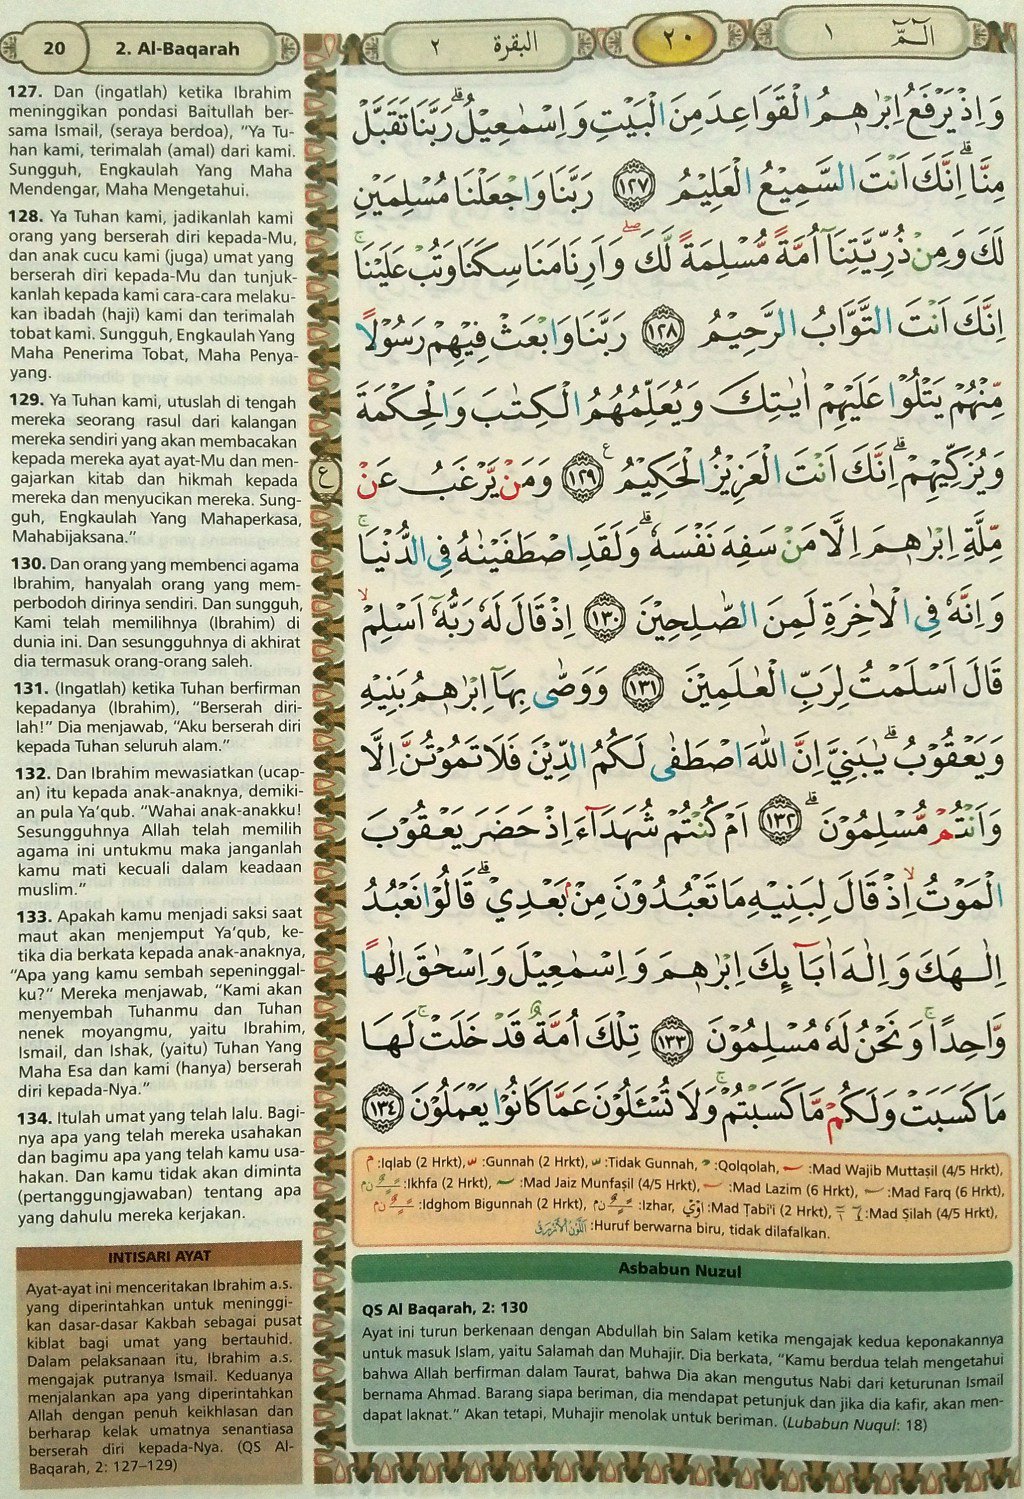 20
2. Al-Baqarah
البقرة ٢
٢٠
الٓمّٓ ١
127. Dan (ingatlah) ketika Ibrahim
meninggikan pondasi Baitullah ber-
sama Ismail, (seraya berdoa), “Ya Tu-
han kami, terimalah (amal) dari kami.
Sungguh, Engkaulah Yang Maha
Mendengar, Maha Mengetahui.
128. Ya Tuhan kami, jadikanlah kami
orang yang berserah diri kepada-Mu,
dan anak cucu kami (juga) umat yang
berserah diri kepada-Mu dan tunjuk-
kanlah kepada kami cara-cara melaku-
kan ibadah (haji) kami dan terimalah
tobat kami. Sungguh, Engkaulah Yang
Maha Penerima Tobat, Maha Penya-
yang.
129. Ya Tuhan kami, utuslah di tengah
mereka seorang rasul dari kalangan
mereka sendiri yang akan membacakan
kepada mereka ayat ayat-Mu dan men-
gajarkan kitab dan hikmah kepada
mereka dan menyucikan mereka. Sung-
guh, Engkaulah Yang Mahaperkasa,
Mahabijaksana.”
130. Dan orang yang membenci agama
Ibrahim, hanyalah orang yang mem-
perbodoh dirinya sendiri. Dan sungguh,
Kami telah memilihnya (Ibrahim) di
dunia ini. Dan sesungguhnya di akhirat
dia termasuk orang-orang saleh.
131. (Ingatlah) ketika Tuhan berfirman
kepadanya (Ibrahim), “Berserah diri-
lah!” Dia menjawab, “Aku berserah diri
kepada Tuhan seluruh alam.”
132. Dan Ibrahim mewasiatkan (ucap-
an) itu kepada anak-anaknya, demiki-
an pula Ya’qub. “Wahai anak-anakku!
Sesungguhnya Allah telah memilih
agama ini untukmu maka janganlah
kamu mati kecuali dalam keadaan
muslim.”
133. Apakah kamu menjadi saksi saat
maut akan menjemput Ya’qub, ke-
tika dia berkata kepada anak-anaknya,
“Apa yang kamu sembah sepeninggal-
ku?” Mereka menjawab, “Kami akan
menyembah Tuhanmu dan Tuhan
nenek moyangmu, yaitu Ibrahim,
Ismail, dan Ishak, (yaitu) Tuhan Yang
Maha Esa dan kami (hanya) berserah
diri kepada-Nya.”
134. Itulah umat yang telah lalu. Bagi-
nya apa yang telah mereka usahakan
dan bagimu apa yang telah kamu usa-
hakan. Dan kamu tidak akan diminta
(pertanggungjawaban) tentang apa
yang dahulu mereka kerjakan.
INTISARI AYAT
Ayat-ayat ini menceritakan Ibrahim a.s.
yang diperintahkan untuk meninggi-
kan dasar-dasar Kakbah sebagai pusat
kiblat bagi umat yang bertauhid.
Dalam pelaksanaan itu, Ibrahim a.s.
mengajak putranya Ismail. Keduanya
menjalankan apa yang diperintahkan
Allah dengan penuh keikhlasan dan
berharap kelak umatnya senantiasa
berserah diri kepada-Nya. (QS Al-
Baqarah, 2: 127–129)
وَاِذْ يَرْفَعُ اِبْرٰهٖمُ الْقَوَاعِدَ مِنَ الْبَيْتِ وَاِسْمٰعِيْلُۗ رَبَّنَا تَقَبَّلْ
مِنَّاۗ اِنَّكَ اَنْتَ السَّمِيْعُ الْعَلِيْمُ ١٢٧ رَبَّنَا وَاجْعَلْنَا مُسْلِمَيْنِ
لَكَ وَمِنْ ذُرِّيَّتِنَآ اُمَّةً مُّسْلِمَةً لَّكَۖ وَاَرِنَا مَنَاسِكَنَا وَتُبْ عَلَيْنَاۚ
اِنَّكَ اَنْتَ التَّوَّابُ الرَّحِيْمُ ١٢٨ رَبَّنَا وَابْعَثْ فِيْهِمْ رَسُوْلًا
مِّنْهُمْ يَتْلُوْا عَلَيْهِمْ اٰيٰتِكَ وَيُعَلِّمُهُمُ الْكِتٰبَ وَالْحِكْمَةَ
وَيُزَكِّيْهِمْۗ اِنَّكَ اَنْتَ الْعَزِيْزُ الْحَكِيْمُ ࣖ ١٢٩ وَمَنْ يَّرْغَبُ عَنْ
ع
مِّلَّةِ اِبْرٰهٖمَ اِلَّا مَنْ سَفِهَ نَفْسَهٗۗ وَلَقَدِ اصْطَفَيْنٰهُ فِى الدُّنْيَاۚ
وَاِنَّهٗ فِى الْاٰخِرَةِ لَمِنَ الصّٰلِحِيْنَ ١٣٠ اِذْ قَالَ لَهٗ رَبُّهٗٓ اَسْلِمْۙ
قَالَ اَسْلَمْتُ لِرَبِّ الْعٰلَمِيْنَ ١٣١ وَوَصّٰى بِهَآ اِبْرٰهٖمُ بَنِيْهِ
وَيَعْقُوْبُۗ يٰبَنِيَّ اِنَّ اللّٰهَ اصْطَفٰى لَكُمُ الدِّيْنَ فَلَا تَمُوْتُنَّ اِلَّا
وَاَنْتُمْ مُّسْلِمُوْنَۗ ١٣٢ اَمْ كُنْتُمْ شُهَدَاۤءَ اِذْ حَضَرَ يَعْقُوْبَ
الْمَوْتُۙ اِذْ قَالَ لِبَنِيْهِ مَا تَعْبُدُوْنَ مِنْۢ بَعْدِيْۗ قَالُوْا نَعْبُدُ
اِلٰهَكَ وَاِلٰهَ اٰبَاۤىِٕكَ اِبْرٰهٖمَ وَاِسْمٰعِيْلَ وَاِسْحٰقَ اِلٰهًا
وَّاحِدًاۚ وَنَحْنُ لَهٗ مُسْلِمُوْنَ ١٣٣ تِلْكَ اُمَّةٌ قَدْ خَلَتْۚ لَهَا
مَا كَسَبَتْ وَلَكُمْ مَّا كَسَبْتُمْۚ وَلَا تُسْـَٔلُوْنَ عَمَّا كَانُوْا يَعْمَلُوْنَ ١٣٤
:Iqlab (2 Hrkt), :Gunnah (2 Hrkt), :Tidak Gunnah, :Qolqolah, :Mad Wajib Muttaṣil (4/5 Hrkt),
:Ikhfa (2 Hrkt), :Mad Jaiz Munfaṣil (4/5 Hrkt), :Mad Lazim (6 Hrkt), :Mad Farq (6 Hrkt),
:Idghom Bigunnah (2 Hrkt), :Izhar, :Mad Ṭabi'i (2 Hrkt), :Mad Ṣilah (4/5 Hrkt),
:Huruf berwarna biru, tidak dilafalkan.
Asbabun Nuzul
QS Al Baqarah, 2: 130
Ayat ini turun berkenaan dengan Abdullah bin Salam ketika mengajak kedua keponakannya
untuk masuk Islam, yaitu Salamah dan Muhajir. Dia berkata, “Kamu berdua telah mengetahui
bahwa Allah berfirman dalam Taurat, bahwa Dia akan mengutus Nabi dari keturunan Ismail
bernama Ahmad. Barang siapa beriman, dia mendapat petunjuk dan jika dia kafir, akan men-
dapat laknat.” Akan tetapi, Muhajir menolak untuk beriman. (Lubabun Nuqul: 18)